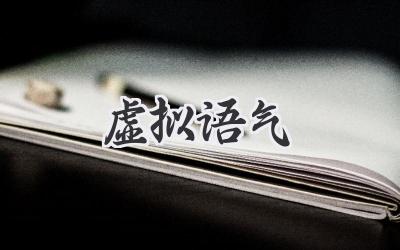 虚拟语气